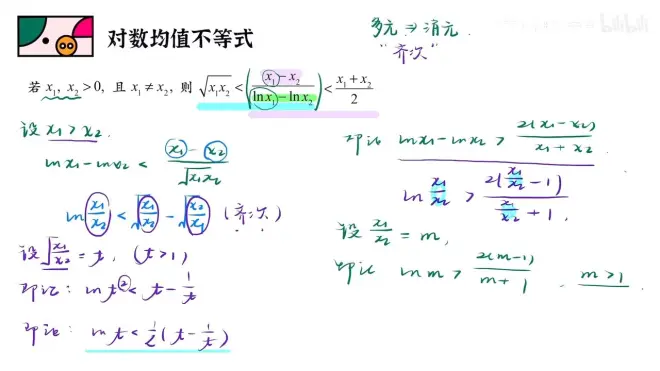 对数均值不等式
多元 ⇒ 消元.
"齐次"
若 x₁, x₂ > 0, 且 x₁ ≠ x₂, 则 √(x₁x₂) < ((x₁ − x₂)/(ln x₁ − ln x₂)) < (x₁ + x₂)/2
设 x₁ > x₂.
lnx₁ − lnx₂ < (x₁ − x₂)/√(x₁x₂)
ln x₁/x₂ < √(x₁/x₂) − √(x₂/x₁) (齐次)
设 √(x₁/x₂) = t, (t > 1)
即证: ln t² < t − 1/t
即证: ln t < 1/2 (t − 1/t)
即证 lnx₁ − lnx₂ > 2(x₁ − x₂)/(x₁ + x₂)
ln x₁/x₂ > 2(x₁/x₂ − 1)/(x₁/x₂ + 1).
设 x₁/x₂ = m,
即证 ln m > 2(m−1)/(m+1). m > 1